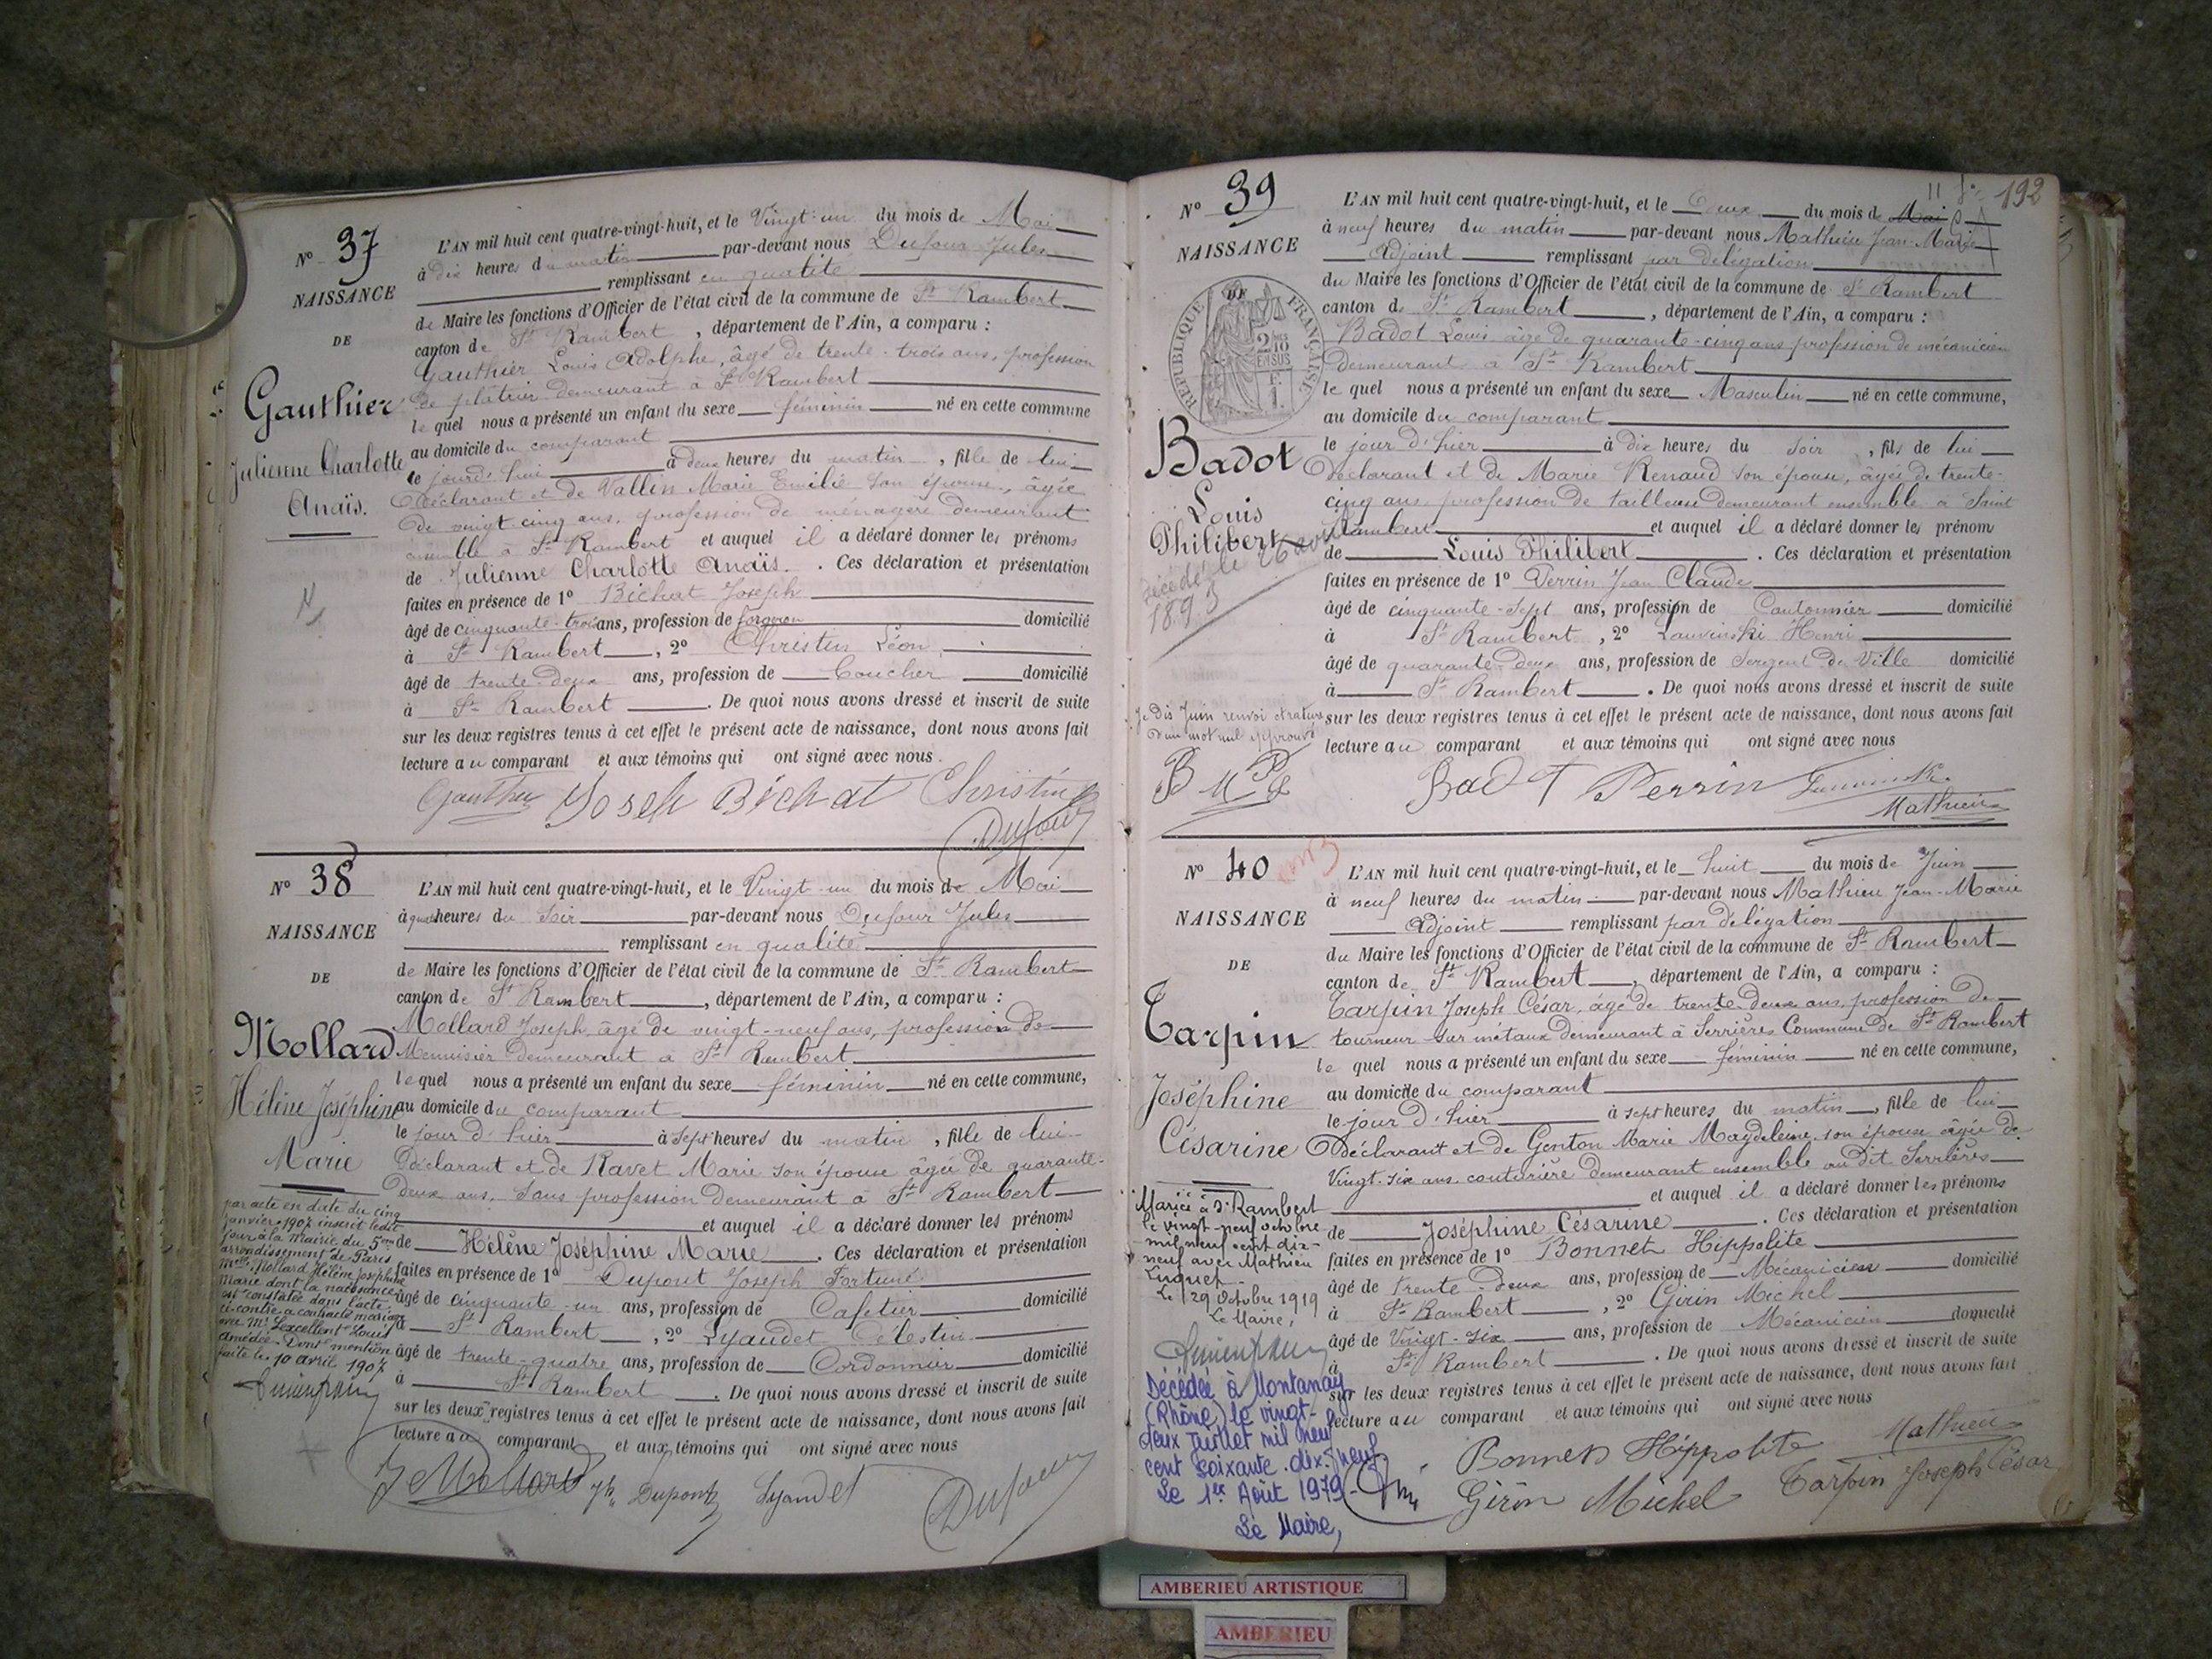 N° 37
NAISSANCE
DE
Gauthier
Julienne Charlotte
Anaïs.
L'AN mil huit cent quatre-vingt-huit, et le Vingt-un du mois de Mai
à dix heures du matin par-devant nous Dufour Jules
remplissant en qualité
de Maire les fonctions d'Officier de l'état civil de la commune de St Rambert
canton de St Rambert, département de l'Ain, a comparu :
Gauthier Louis Adolphe, âgé de trente-trois ans, profession
de plâtrier demeurant à St Rambert
le quel nous a présenté un enfant du sexe féminin né en cette commune
au domicile du comparant
le jourd'hui à deux heures du matin, fille de lui
Déclarant et de Vallin Marie Emilie son épouse, âgée
de vingt cinq ans, profession de ménagère demeurant
ensemble à St Rambert et auquel il a déclaré donner les prénoms
de Julienne Charlotte Anaïs. . Ces déclaration et présentation
faites en présence de 1° Bichat Joseph
âgé de cinquante-trois ans, profession de forgeron domicilié
à St Rambert, 2° Christin Léon
âgé de trente-deux ans, profession de Boucher domicilié
à St Rambert. De quoi nous avons dressé et inscrit de suite
sur les deux registres tenus à cet effet le présent acte de naissance, dont nous avons fait
lecture au comparant et aux témoins qui ont signé avec nous.
Gauthier Joseph Bichat Christin
Dufour
N° 38
NAISSANCE
DE
Mollard
Hélène Joséphine
Marie
par acte en date du cinq
janvier 1907 inscrit ledit
jour à la Mairie du 5eme
arrondissement de Paris
Melle Mollard Hélène Joséphine
Marie dont la naissance
est constatée dans l'acte
ci-contre a contracté mariage
avec Mr Lexcellent Louis
Amédée. Dont mention
faite le 10 avril 1907
L'AN mil huit cent quatre-vingt-huit, et le Vingt-un du mois de Mai
à quatre heures du soir par-devant nous Dufour Jules
remplissant en qualité
de Maire les fonctions d'Officier de l'état civil de la commune de St Rambert
canton de St Rambert, département de l'Ain, a comparu :
Mollard Joseph, âgé de vingt-neuf ans, profession de
Menuisier demeurant à St Rambert
lequel nous a présenté un enfant du sexe féminin né en cette commune,
au domicile du comparant
le jour d'hier à sept heures du matin, fille de lui
Déclarant et de Ravet Marie son épouse âgée de quarante-
deux ans, sans profession demeurant à St Rambert
et auquel il a déclaré donner les prénoms
de Hélène Joséphine Marie. Ces déclaration et présentation
faites en présence de 1° Dupont Joseph Fortuné
âgé de cinquante-un ans, profession de Cafetier domicilié
à St Rambert, 2° Lyaudet Célestin
âgé de trente-quatre ans, profession de Cordonnier domicilié
à St Rambert. De quoi nous avons dressé et inscrit de suite
sur les deux registres tenus à cet effet le présent acte de naissance, dont nous avons fait
lecture au comparant et aux témoins qui ont signé avec nous
J Mollard Jh Dupont Lyaudet Dufour
192
N° 39
NAISSANCE
DE
RÉPUBLIQUE FRANÇAISE
2/10 EN SUS
Badot
Louis
Philibert
décédé le 26 avril
1893
Je dis Juin renvoi et rature
d'un mot nul approuvé
B M P L
L'AN mil huit cent quatre-vingt-huit, et le Deux du mois de Mai
à neuf heures du matin par-devant nous Mathieu Jean-Marie
Adjoint remplissant par délégation
du Maire les fonctions d'Officier de l'état civil de la commune de St Rambert
canton de St Rambert, département de l'Ain, a comparu :
Badot Louis âgé de quarante-cinq ans profession de mécanicien
demeurant à St Rambert
le quel nous a présenté un enfant du sexe Masculin né en cette commune,
au domicile du comparant
le jour d'hier à dix heures du soir, fils de lui
Déclarant et de Marie Renaud son épouse, âgée de trente-
cinq ans profession de tailleuse demeurant ensemble à Saint
Rambert et auquel il a déclaré donner les prénoms
de Louis Philibert. Ces déclaration et présentation
faites en présence de 1° Perrin Jean Claude
âgé de cinquante-sept ans, profession de Cantonnier domicilié
à St Rambert, 2° Lauvinski Henri
âgé de quarante-deux ans, profession de Sergent de Ville domicilié
à St Rambert. De quoi nous avons dressé et inscrit de suite
sur les deux registres tenus à cet effet le présent acte de naissance, dont nous avons fait
lecture au comparant et aux témoins qui ont signé avec nous
Badot Perrin
Mathieu
N° 40
NAISSANCE
DE
Tarpin
Joséphine
Césarine
Mariée à St Rambert
le vingt-neuf octobre
mil neuf cent dix-
neuf avec Mathieu
Luquet
Le 29 Octobre 1919
Le Maire,
Décédée à Montanay
(Rhône) le vingt-
deux Juillet mil neuf
cent soixante-dix-neuf.
Le 1er Août 1979
Le Maire,
L'AN mil huit cent quatre-vingt-huit, et le huit du mois de Juin
à neuf heures du matin par-devant nous Mathieu Jean-Marie
Adjoint remplissant par délégation
du Maire les fonctions d'Officier de l'état civil de la commune de St Rambert
canton de St Rambert, département de l'Ain, a comparu :
Tarpin Joseph César, âgé de trente-deux ans, profession de
tourneur sur métaux demeurant à Serrières Commune de St Rambert
le quel nous a présenté un enfant du sexe féminin né en cette commune,
au domicile du comparant
le jour d'hier à sept heures du matin, fille de lui
Déclarant et de Genton Marie Magdeleine son épouse âgée de
Vingt-six ans couturière demeurant ensemble au dit Serrières
et auquel il a déclaré donner les prénoms
de Joséphine Césarine. Ces déclaration et présentation
faites en présence de 1° Bonnet Hippolite
âgé de trente-deux ans, profession de Mécanicien domicilié
à St Rambert, 2° Girin Michel
âgé de Vingt-six ans, profession de Mécanicien domicilié
à St Rambert. De quoi nous avons dressé et inscrit de suite
sur les deux registres tenus à cet effet le présent acte de naissance, dont nous avons fait
lecture au comparant et aux témoins qui ont signé avec nous
Bonnet Hippolite Mathieu
Girin Michel Tarpin Joseph César
AMBERIEU ARTISTIQUE
AMBERIEU